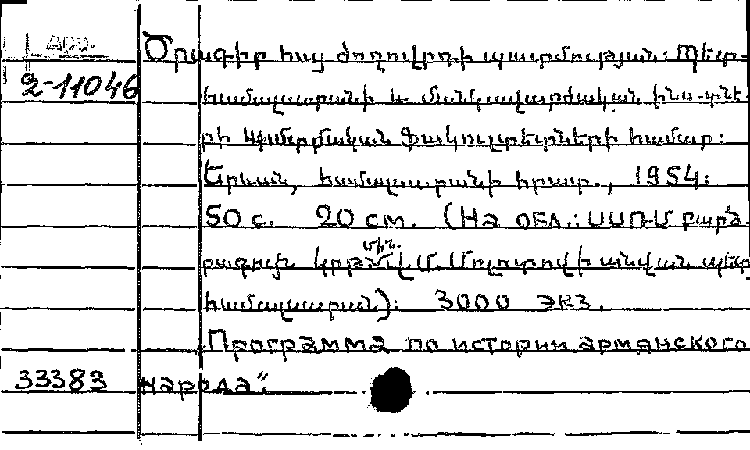 Арм.
2-11046
Ծրագիր հայ ժողովրդի պատմության: Պետ-
համալսարանի և մանկավարժական ինս-տնե-
րի պատմական ֆակուլտետների համար:
Երևան, համալսարանի հրատ., 1954:
50 с. 20 см. (На обл.: ՍՍՌՄ բարձ-
րագույն կրթ. մին. Վ. Մ. Մոլոտովի անվան պետ
համալսարան): 3000 экз.
Программа по истории армянского
33383 народа".